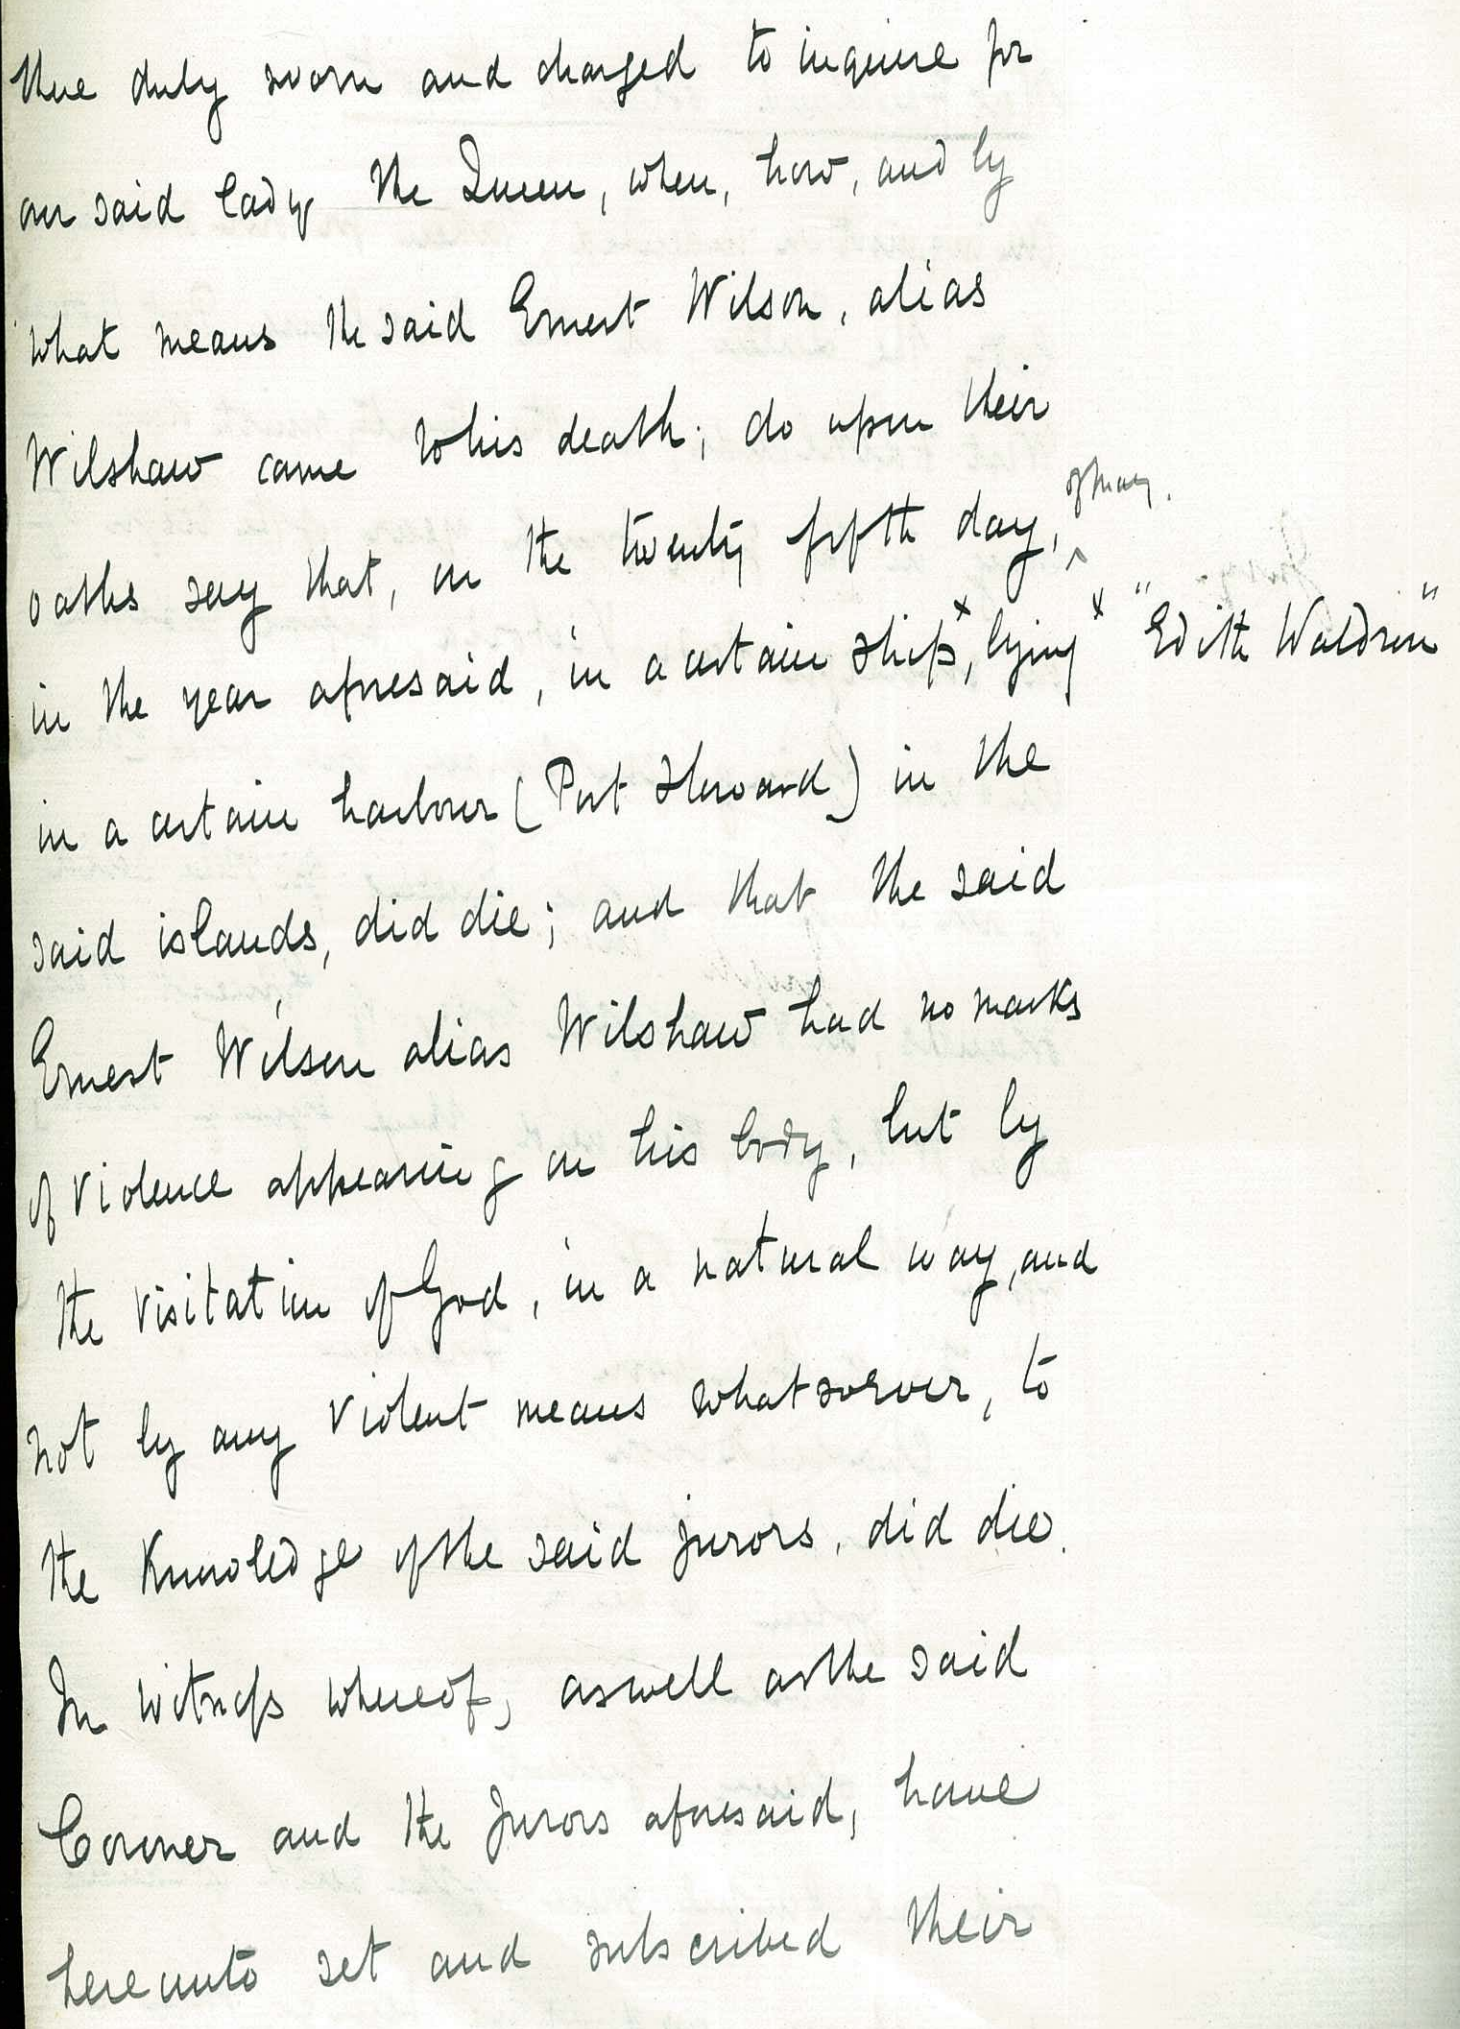 there duly sworn and charged to inquire for
our said lady the Queen, when, how, and by
what means the said Ernest Wilson, alias
Wilshaw came to his death; do upon their
oaths say that, on the twenty fifth day, ^ of May.
in the year aforesaid, in a certain ship x, lying x "Edith Waldron"
in a certain harbour (Port Howard) in the
said islands, did die; and that the said
Ernest Wilson alias Wilshaw had no marks
of violence appearing on his body, but by
the visitation of God, in a natural way, and
not by any violent means whatsoever, to
the Knowledge of the said jurors, did die.
In witness whereof, as well as the said
Coroner and the Jurors aforesaid, have
hereunto set and subscribed their